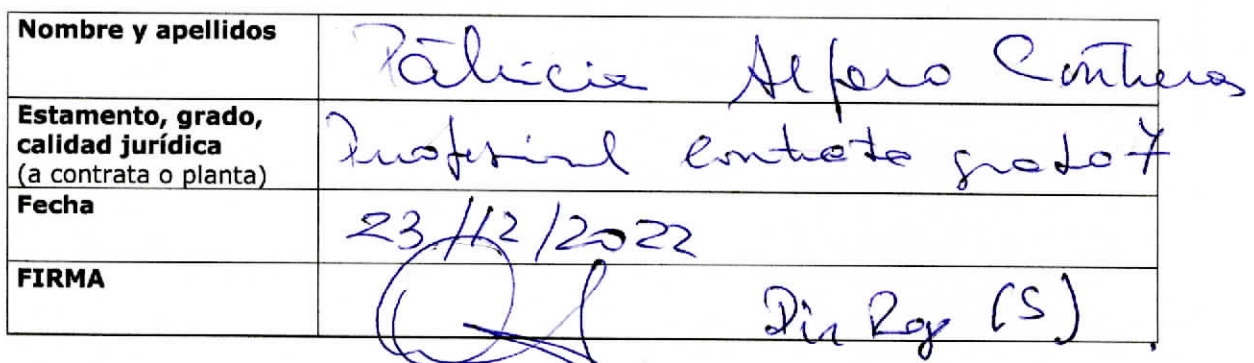 Nombre y apellidos
Patricia Alfaro Contreras
Estamento, grado,
calidad jurídica
(a contrata o planta)
Profesional contrata grado 7
Fecha
23/12/2022
FIRMA
Dir Reg (S)